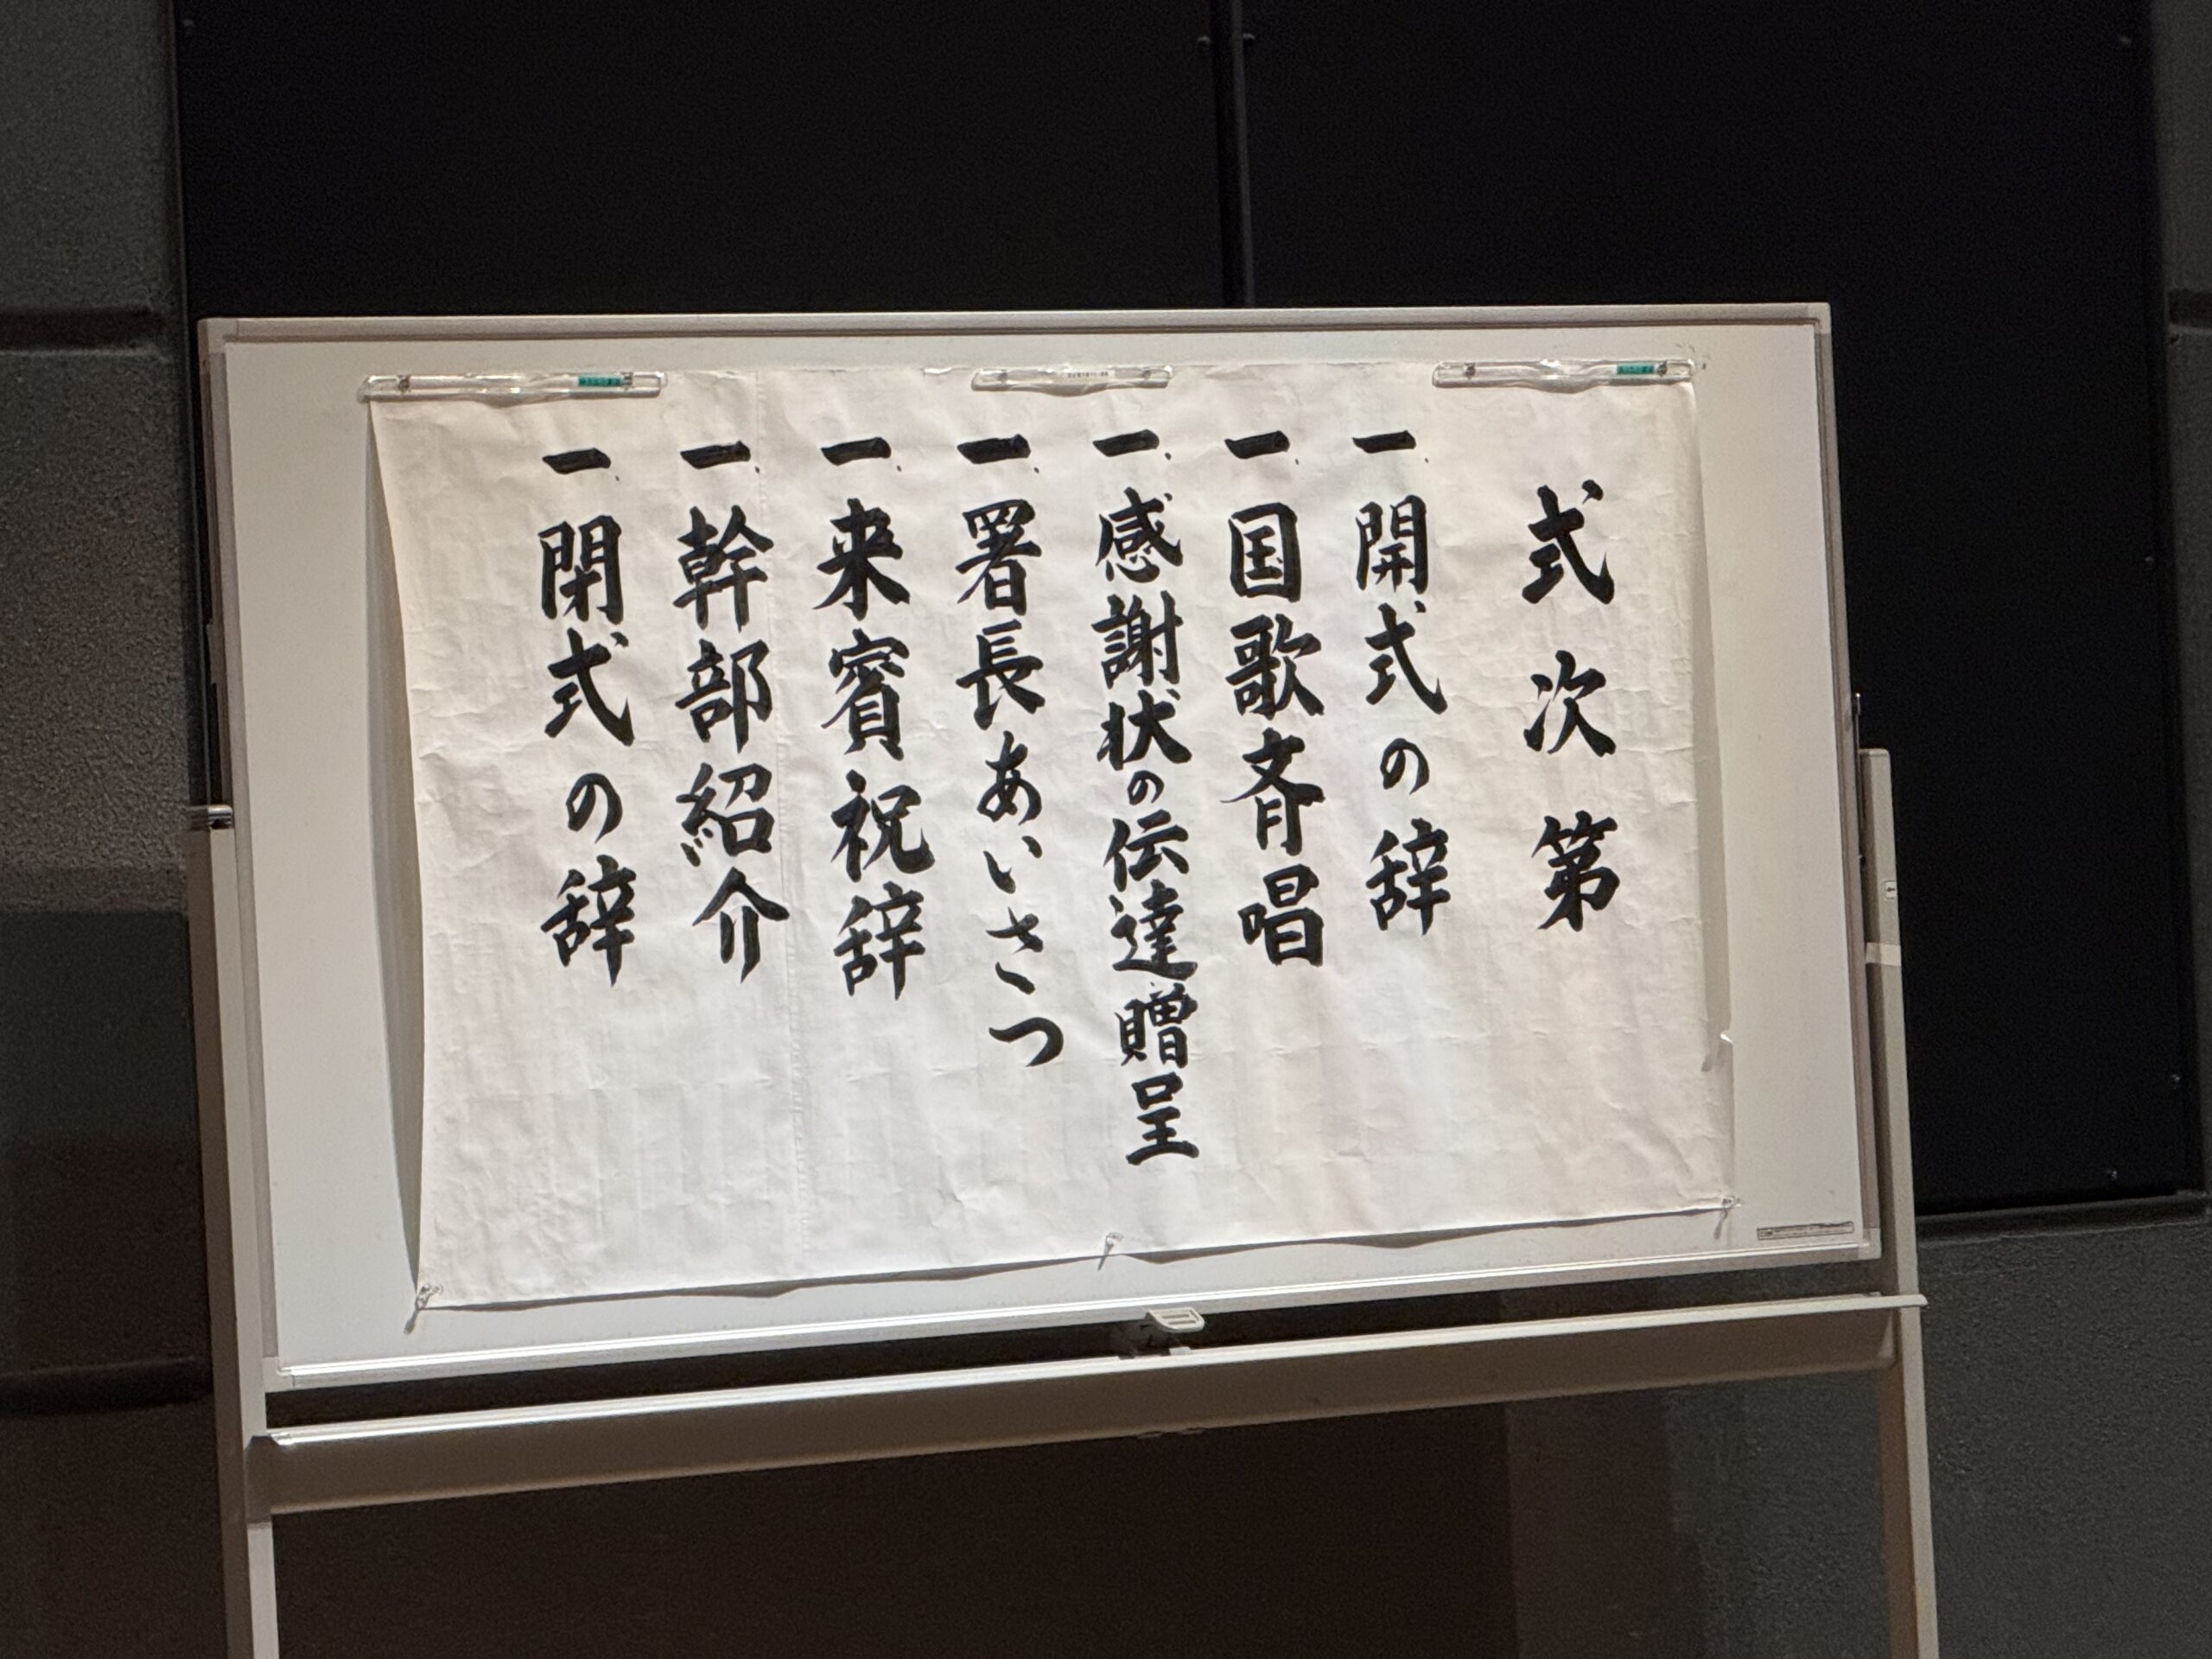 式次第
一 開式の辞
一 国歌斉唱
一 感謝状の伝達贈呈
一 署長あいさつ
一 来賓祝辞
一 幹部紹介
一 閉式の辞